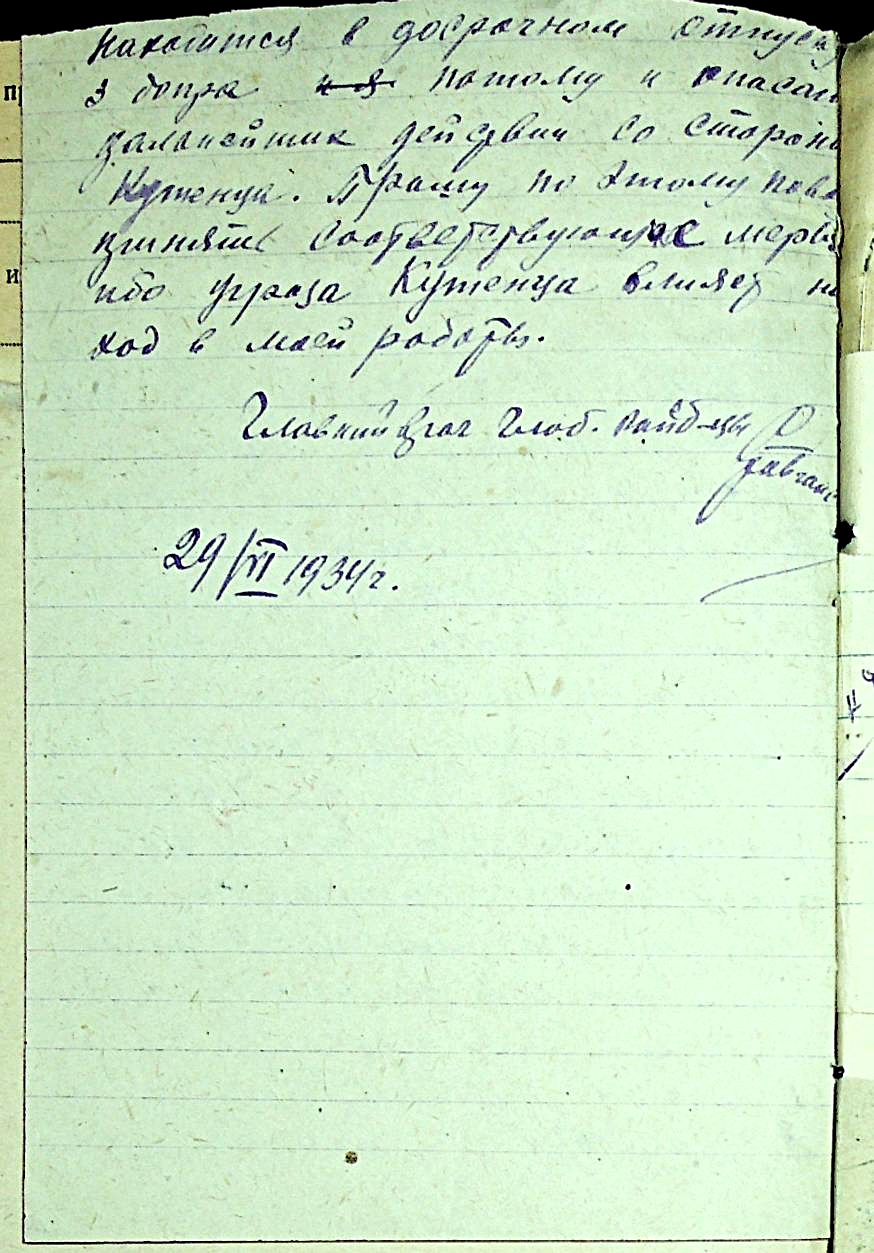 находится в досрочном отпуску
з допра и я потому и опасаю
дальнейших действии со сторон
Куженца. Прошу по этому пово
принять соответствующие меры
ибо угроза Куженца влияет на
ход в моей работы.
Главний врач Глоб. райб-цы
29/VI 1934 г.
п
и